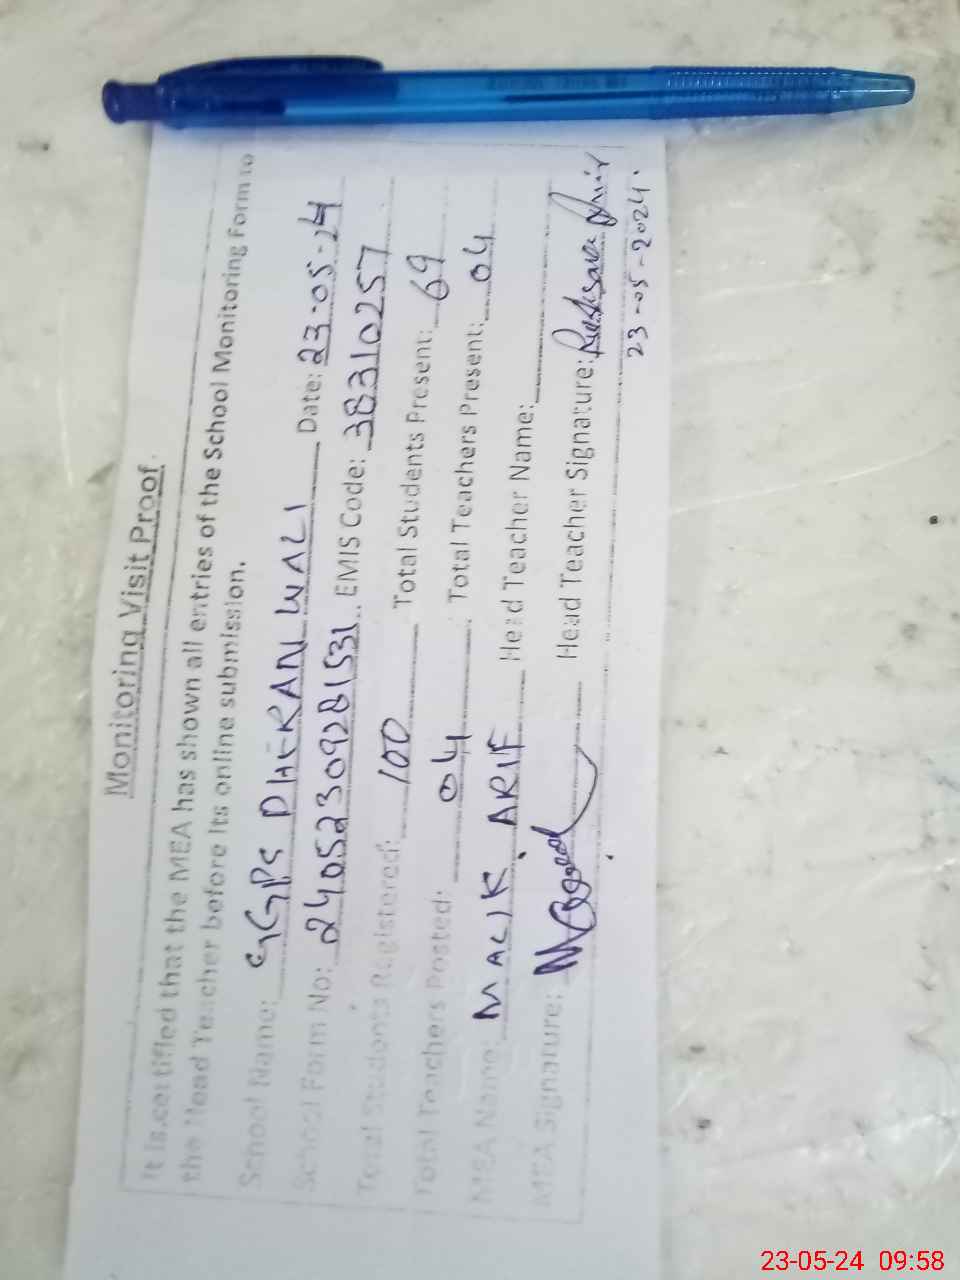 Monitoring Visit Proof
It is certified that the MEA has shown all entries of the School Monitoring Form to
the Head Teacher before its online submission.
School Name: GGPS DHERAN WALI Date: 23-05-24
School Form No: 24052309281531 EMIS Code: 38310257
Total Students Registered: 100 Total Students Present: 69
Total Teachers Posted: 04 Total Teachers Present: 04
MEA Name: MALIK ARIF Head Teacher Name:
MEA Signature: Head Teacher Signature:
23-05-2024.
23-05-24 09:58